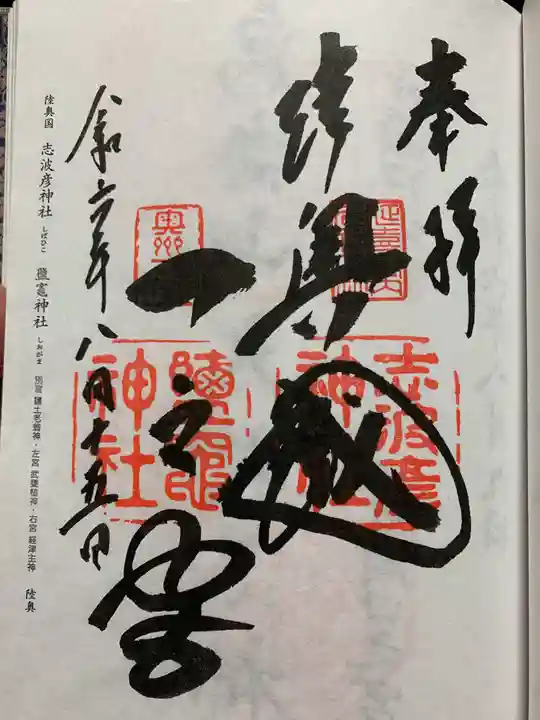 奉拝
陸奥國
一之宮
令和六年八月十五日
志波彦
神社
鹽竈
神社
奥州一
陸奥国 志波彦神社 しばひこ 鹽竈神社 しおがま 別宮 鹽土老翁神・左宮 武甕槌神・右宮 経津主神 陸奥